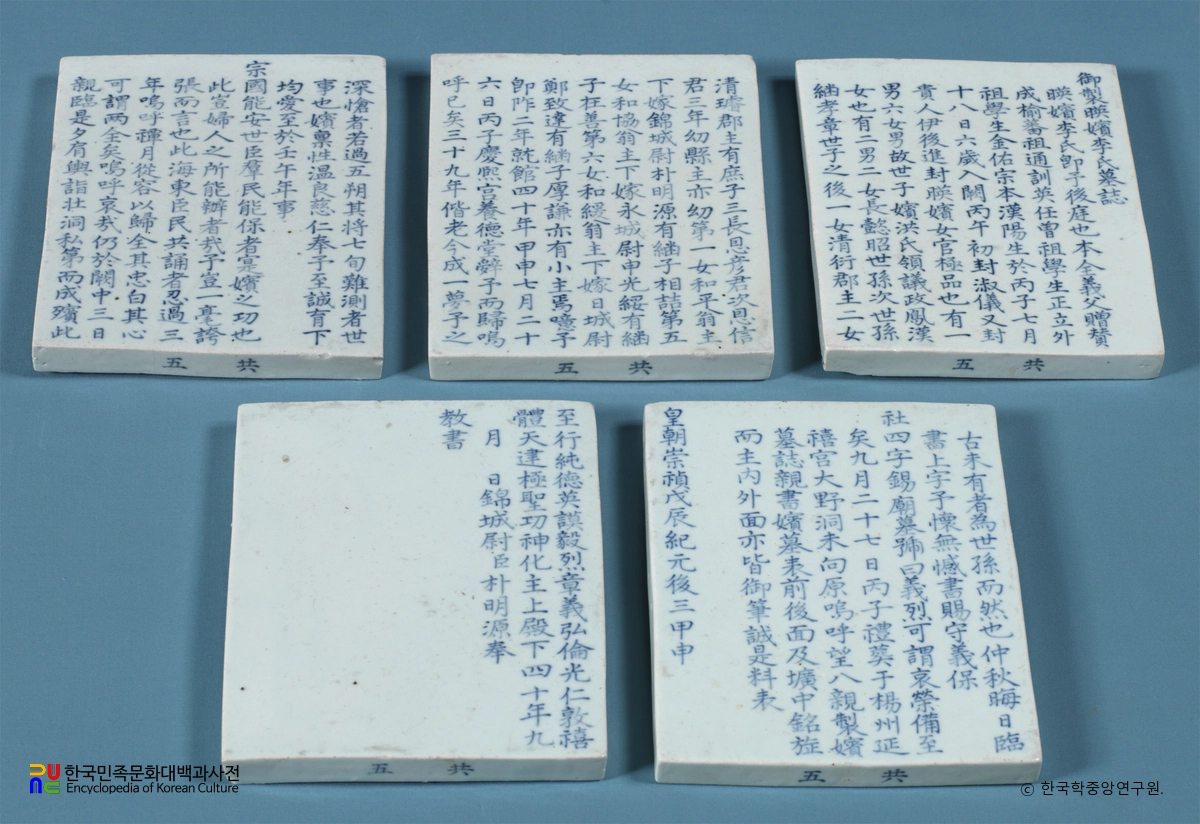 御製暎嬪李氏墓誌
暎嬪李氏卽予後庭也本全義父贈贊
成楡蕃祖通訓英任曾祖學生正立外
祖學生金佑宗本漢陽生於丙子七月
十八日六歲入闕丙午初封淑儀又封
貴人伊後進封暎嬪女官極品也有一
男六女男故世子嬪洪氏領議政鳳漢
女也有二男二女長懿昭世孫次世孫
継孝章世子之後一女淸衍郡主二女
共 五
淸璿郡主有庶子三長恩彦君次恩信
君三年幼縣主亦幼第一女和平翁主
下嫁錦城尉朴明源有継子相喆第五
女和協翁主下嫁永城尉申光綏有継
子在善第六女和緩翁主下嫁日城尉
鄭致達有継子厚謙亦有小主焉噫予
卽阼二年就館四十年甲申七月二十
六日丙子慶熙宮養德堂辭予而歸嗚
呼已矣三十九年偕老今成一夢予之
共 五
深愴者若過五朔其將七旬難測者世
事也嬪稟性温良慈仁奉予至誠有下
均愛至於壬午年事
宗國能安世臣羣民能保者寔嬪之功也
此豈婦人之所能辦者㢤予豈一毫誇
張而言也此海東臣民共誦者忍過三
年嗚呼禫月從容以歸全其忠白其心
可謂兩全矣嗚呼哀㢤仍於闕中三日
親臨是夕肩輿詣壯洞私第而成殯此
共 五
古未有者為世孫而然也仲秋晦日臨
書上字予懷無憾書賜守義保
社四字錫廟墓號曰義烈可謂哀榮備至
矣九月二十七日丙子禮葬于楊州延
禧宮大野洞未向原嗚呼望八親製嬪
墓誌親書嬪墓表前後面及壙中銘旌
而主內外面亦皆御筆誠是料表
皇朝崇禎戊辰紀元後三甲申
共 五
至行純德英謨毅烈章義弘倫光仁敦禧
體天建極聖功神化主上殿下四十年九
月 日錦城尉臣朴明源奉
敎書
共 五
한국민족문화대백과사전
Encyclopedia of Korean Culture
ⓒ 한국학중앙연구원.